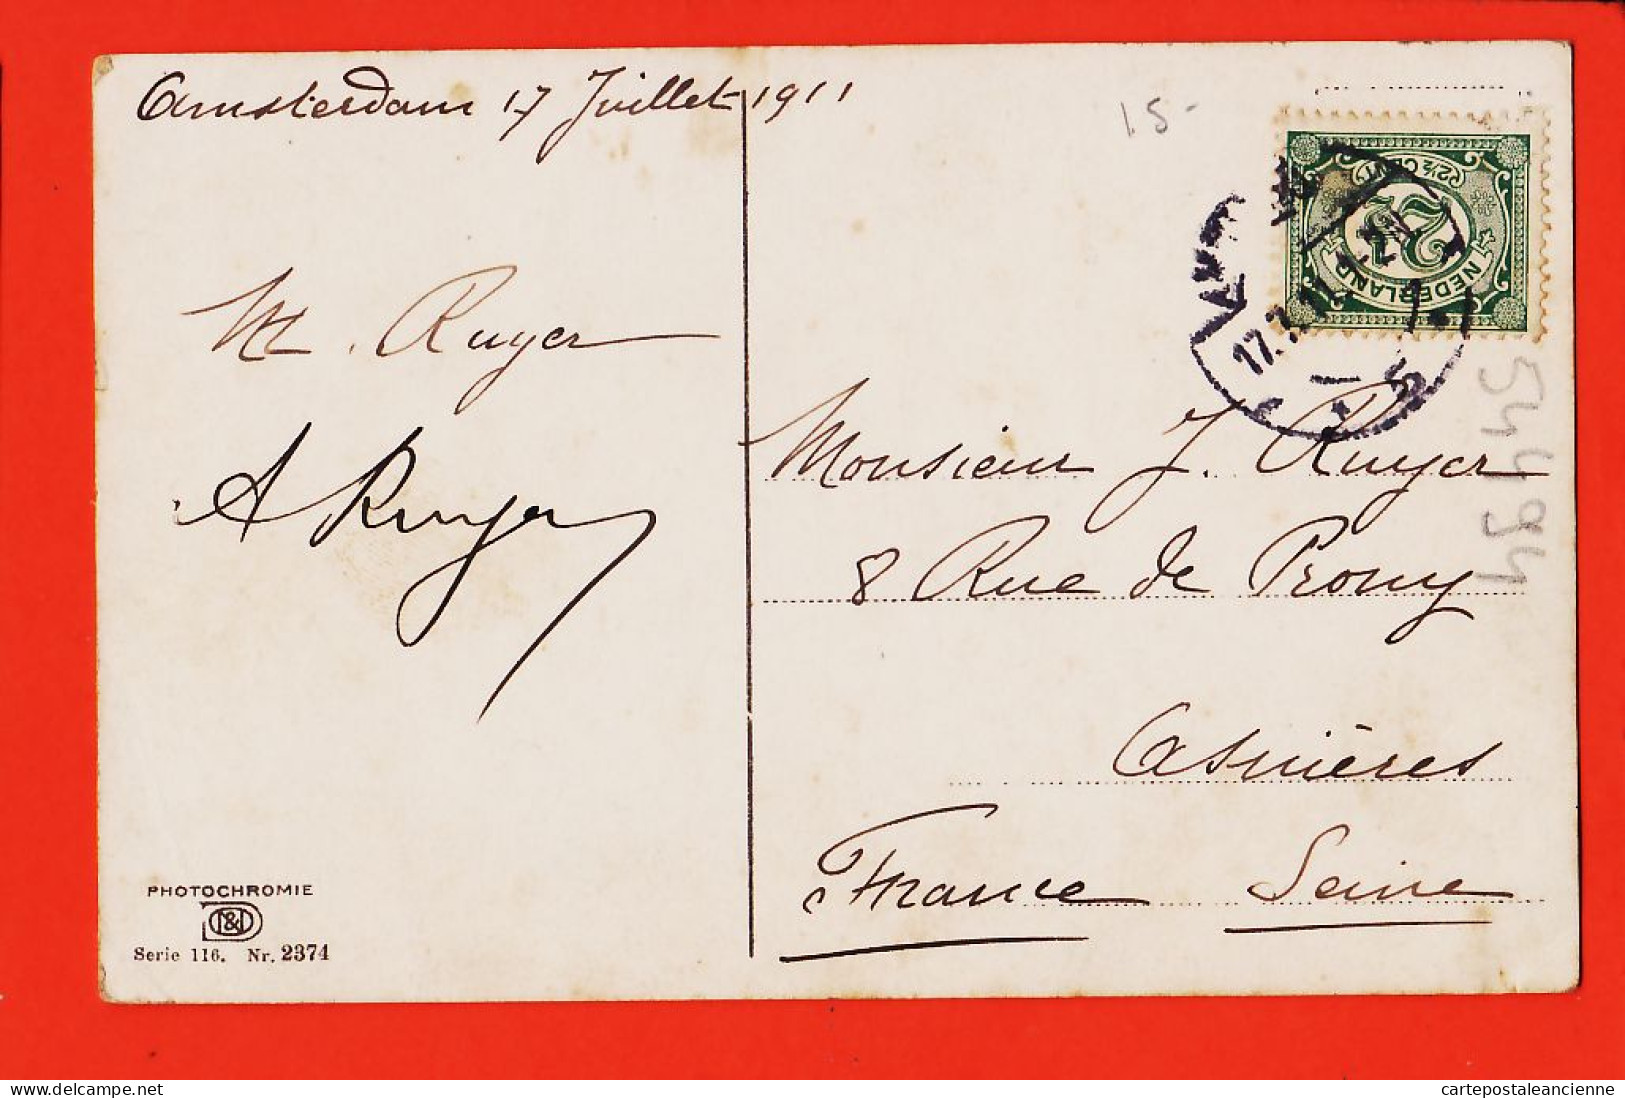 Amsterdam 17 Juillet 1911
M. Ruyer
A Ruyer
PHOTOCHROMIE
N&D
Serie 116. Nr. 2374
1.5-
2½ CENT
2½
NEDERLAND
17.7.11
5
54494
Monsieur J. Ruyer
8 Rue de Prony
Asnières
France Seine
delcampe.net
cartepostaleancienne